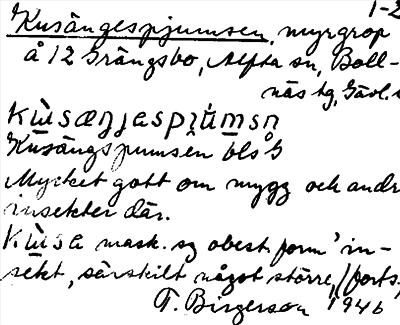 1-2
Kusängespjumsen, myrgrop
å 12 Grängsbo, Alfta sn, Boll-
näs tg, Gävl.
Kusängspumsen bls G
Mycket gott om mygg och andr
insekter där.
Kùsa mask. sg obest. form 'in-
sekt, särskilt något större, (forts.
T. Birgerson 1946